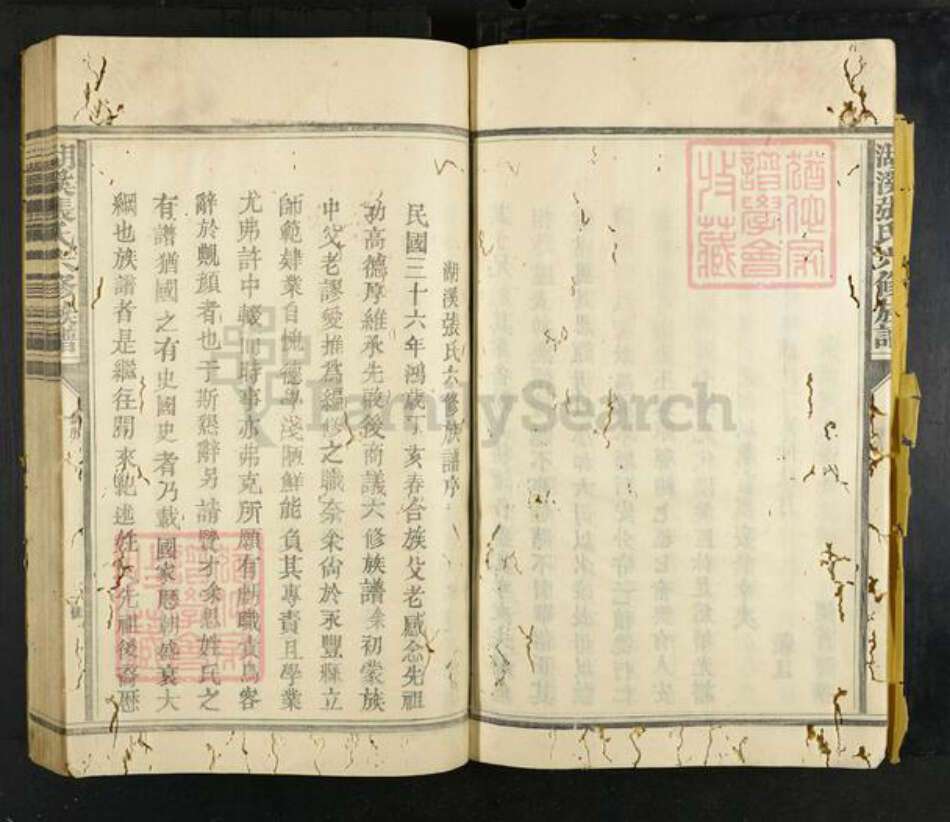 湖溪張氏六修族譜
猶他家
譜學會
收藏
湖溪張氏六修族譜序
民國三十六年鴻歲丁亥春合族父老感念先祖
功高德厚維承先啟後商議六修族譜余初蒙族
中父老謬愛推爲編修之職奈余尙於永豐縣立
師範肄業自愧德學淺陋鮮能負其專責且學業
尤弗許中輟而時事亦弗克所願有曠職責烏容
辭於靦顔者也于斯懇辭另請賢才余思姓氏之
有譜猶國之有史國史者乃載國家歷朝盛衰大
綱也族譜者是繼往開來範述姓氏先祖後裔歷
湖溪張氏六修族譜
猶他家
譜學會
收藏
FamilySearch